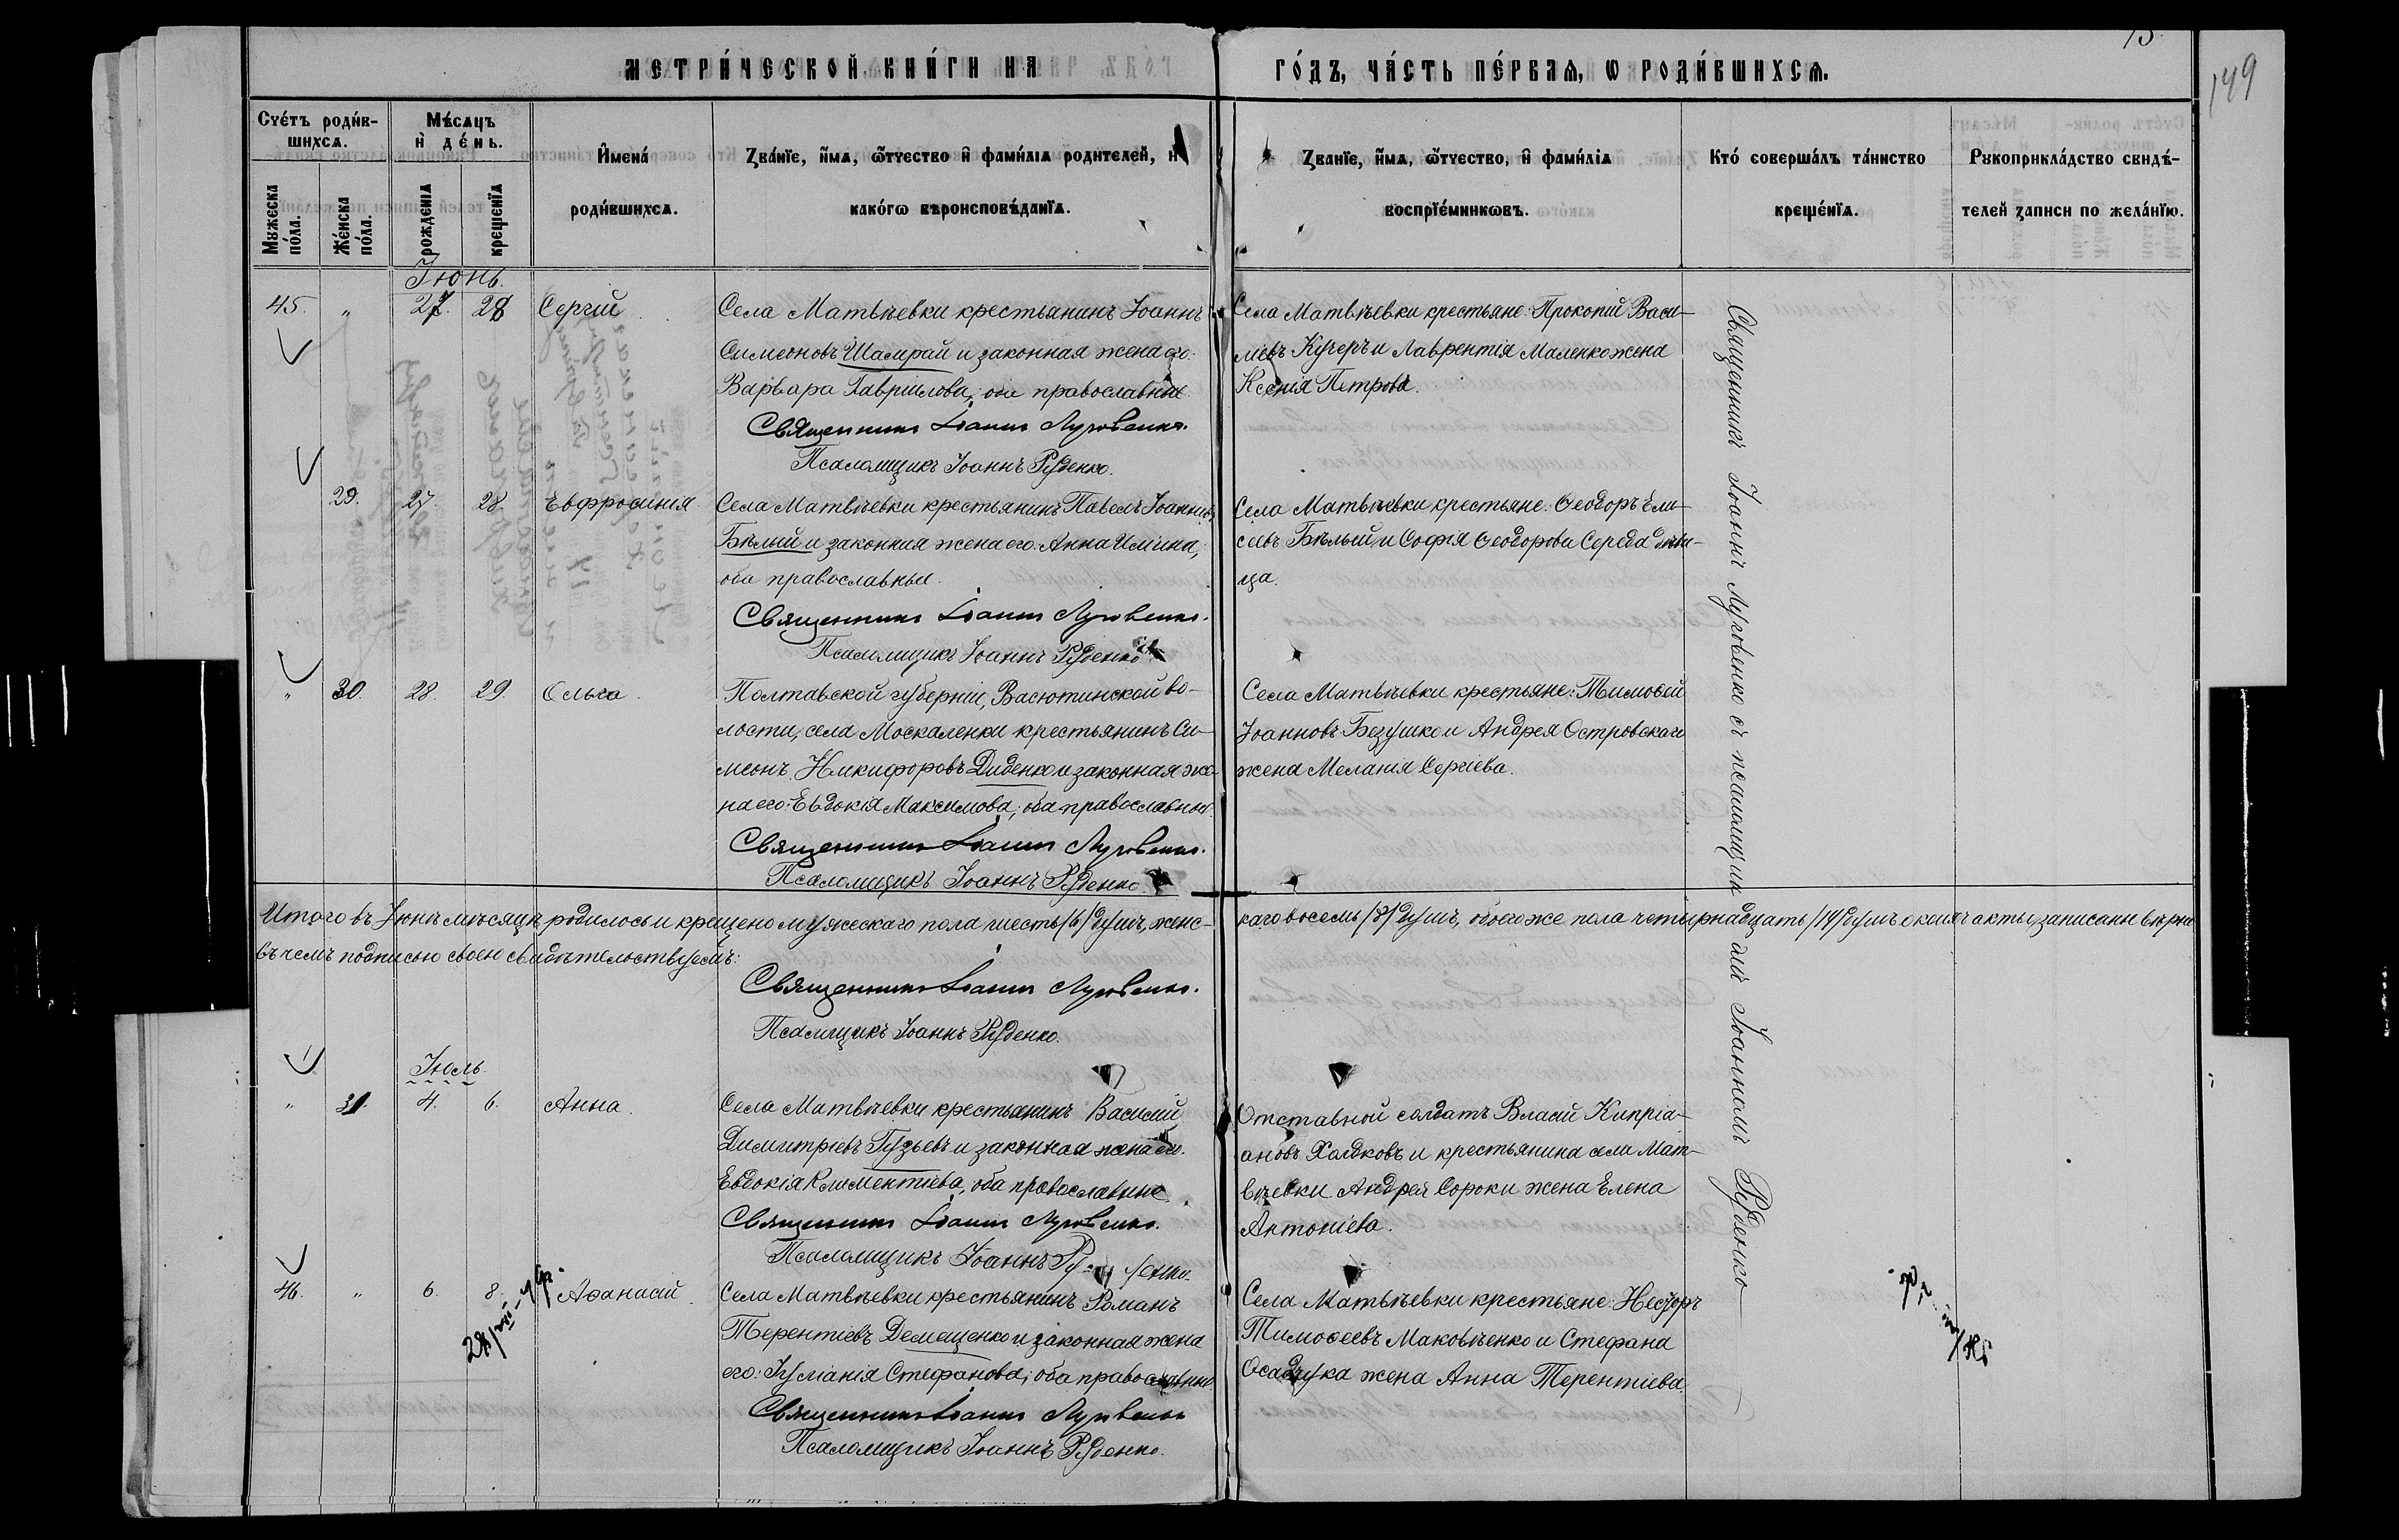 МЕТРИ́ЧЕСКОЙ КНИ́ГИ НА ГО́ДЪ, ЧА́СТЬ ПЕ́РВАѦ, Ѡ РОДИ́ВШИХСѦ.
149
Счéтъ роди́в-
шихсѧ.
Мѣ́сѧцъ
и҆ де́нь.
Мꙋжеска
по́ла.
Же́нска
по́ла.
рожденїѧ
крещенїѧ
И҆мена́
роди́вшихсѧ.
Зва́нїе, и҆́мѧ, ѻ҆́тчество и҆ фами́лїѧ родителей, и҆
како́гѡ вѣроисповѣ́данїѧ.
Зва́нїе, и҆́мѧ, ѻ҆́тчество, и҆ фами́лїѧ
воспрїе́мникѡвъ.
Кто́ соверша́лъ та́инство
креще́нїѧ.
Рꙋкоприкла́дство свидѣ́-
телей записи по жела́нїю.
Іюнь.
45. " 27. 28 Сергій
Села Матвѣевки крестьянинъ Іоаннъ
Симеоновъ Шамрай и законная жена его:
Варвара Гавриилова, оба православные.
Священникъ Іоаннъ Луговенко.
Псаломщикъ Іоаннъ Руденко.
Села Матвѣевки крестьяне: Прокопій Васи-
ліевъ Кучеръ и Лаврентія Маленко жена
Ксенія Петрова.
Священникъ Іоаннъ Луговенко съ псаломщик
омъ Іоанномъ Руденко
29. 27. 28. Евфросинія
Села Матвѣевки крестьянинъ Павелъ Іоанновъ
Бѣлый и законная жена его: Анна Ильина,
оба православные.
Священникъ Іоаннъ Луговенко.
Псаломщикъ Іоаннъ Руденко
Села Матвѣевки крестьяне: Ѳеодоръ Ели-
сеевъ Бѣлый и Софія Ѳеодорова Середа дѣви-
ца.
" 30. 28. 29. Ольга.
Полтавской губерніи, Васютинской во-
лости, села Москаленки крестьянинъ Си-
меонъ Никифоровъ Диденко и законная же-
на его: Евдокія Максимова; оба православные.
Священникъ Іоаннъ Луговенко.
Псаломщикъ Іоаннъ Руденко
Села Матвѣевки крестьяне: Тимоѳей
Іоанновъ Безушко и Андрея Островскаго
жена Меланія Сергіева.
Итого въ Іюнѣ мѣсяцѣ родилось и крещено мужескаго пола шесть /6/ душъ, женс-
каго восемь /8/ душъ, обоего же пола четырнадцать /14/ душъ о коихъ акты записаны вѣрно
въ чемъ подписью своею свидѣтельствуемъ:
Священникъ Іоаннъ Луговенко.
Псаломщикъ Іоаннъ Руденко.
Іюль.
" 31. 4. 6. Анна.
Села Матвѣевки крестьянинъ Василій
Димитріевъ Гузьевъ и законная жена его:
Евдокія Климентіева, оба православные.
Священникъ Іоаннъ Луговенко.
Псаломщикъ Іоаннъ Руденко.
Отставной солдатъ Власій Кипріа-
новъ Халдковъ и крестьянина села Мат-
вѣевки Андрея Сороки жена Елена
Антоніева.
46. " 6. 8. Аѳанасій.
Села Матвѣевки крестьянинъ Романъ
Терентіевъ Демещенко и законная жена
его: Іуліанія Стефанова; оба православные.
Священникъ Іоаннъ Луговенко
Псаломщикъ Іоаннъ Руденко.
Села Матвѣевки крестьяне: Несторъ
Тимоѳеевъ Маковѣенко и Стефана
Осадчука жена Анна Терентіева.